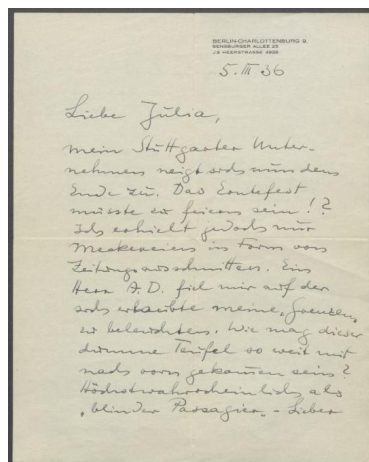 BERLIN-CHARLOTTENBURG 9,
SENSBURGER ALLEE 25
J3 HEERSTRASSE 4926
5. III 36
Liebe Julia,
mein Stuttgarter Unter-
nehmen neigt sich nun dem
Ende zu. Das Erntefest
müsste zu feiern sein!?
Ich erhielt jedoch nur
Meckereien in Form von
Zeitungsausschnitten. Ein
Herr A.D. fiel mir auf der
sich erlaubte meine „Grenzen„
zu beleuchten. Wie mag dieser
dumme Teufel so weit mit
nach vorn gekommen sein?
Höchstwahrscheinlich als
„blinder Passagier„ - Lieber